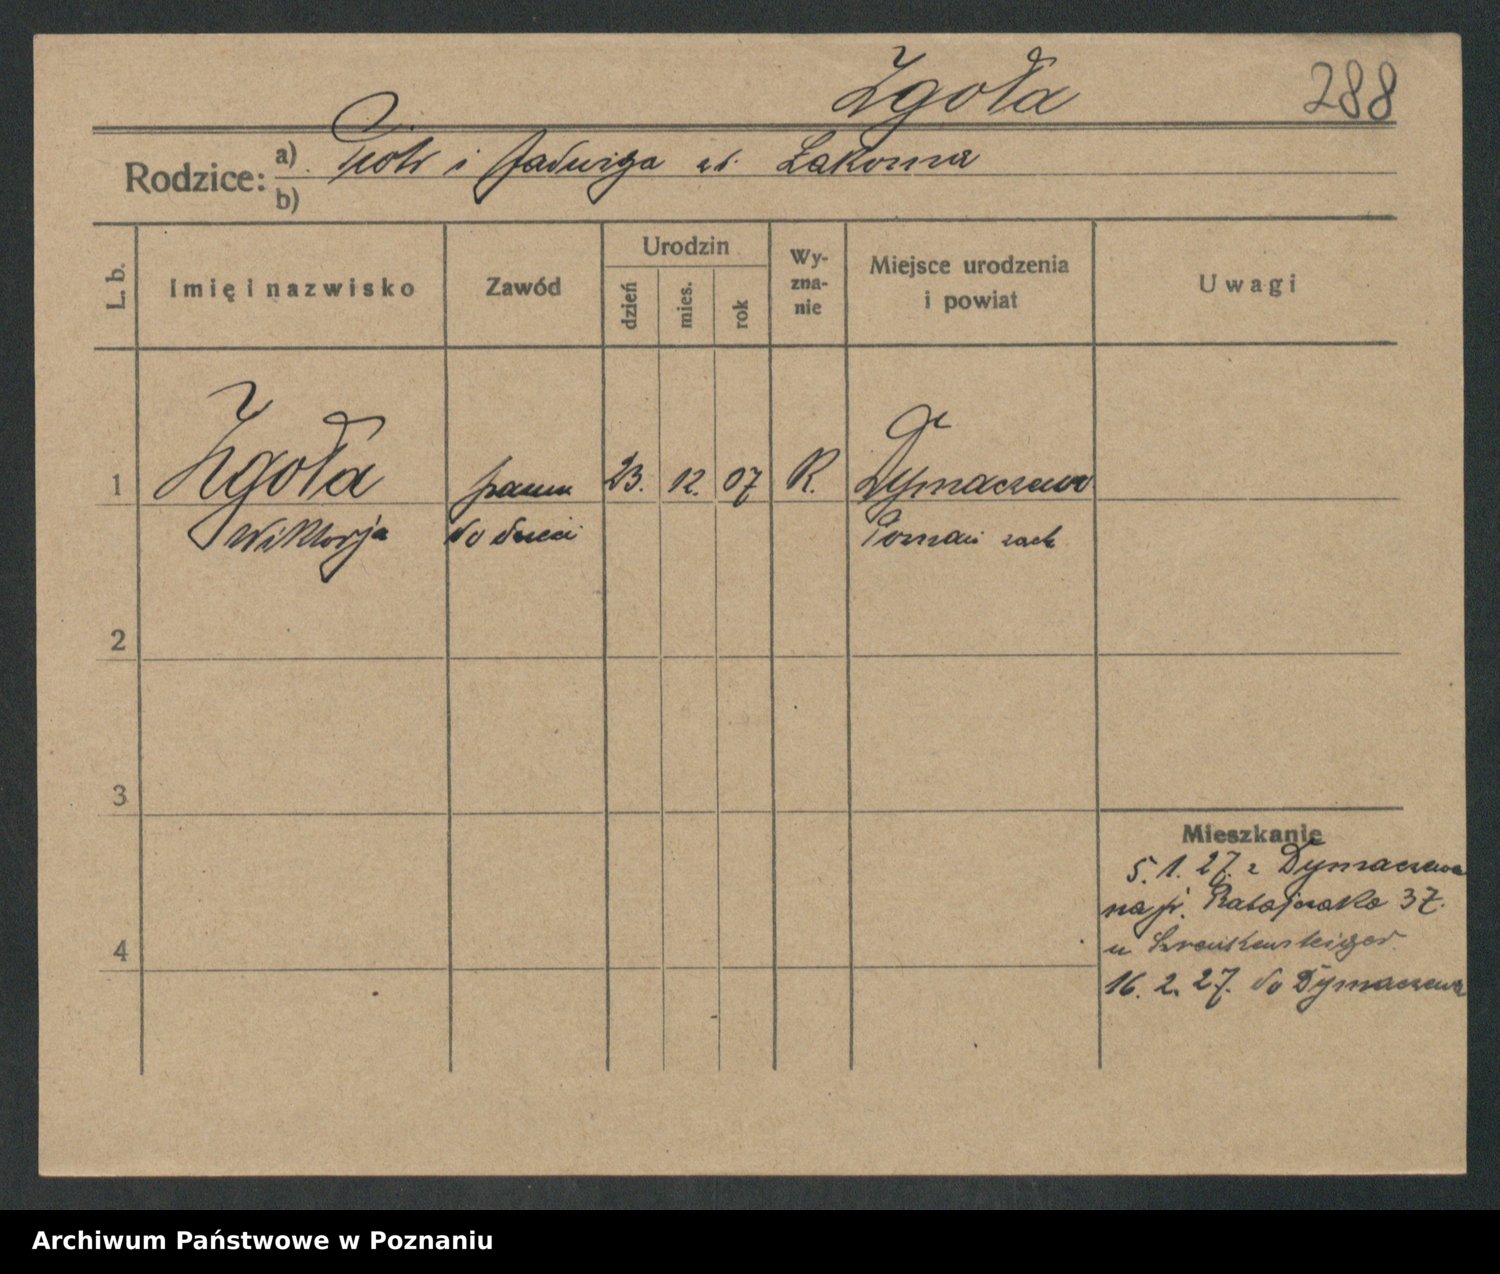 Zgoła 288
Rodzice: a) Piotr i Jadwiga ur. Łakoma
b)
L. b. Imię i nazwisko Zawód Urodzin dzień mies. rok Wyznanie Miejsce urodzenia i powiat Uwagi
1 Zgoła panna 23. 12. 07 R. Dymaczewo
Wiktorja do dzieci Poznań zach
2
3
Mieszkanie
5. 1. 27. z Dymaczewa
na pr. Ratajczaka 37.
4 u
16. 2. 27. do Dymaczewa
Archiwum Państwowe w Poznaniu